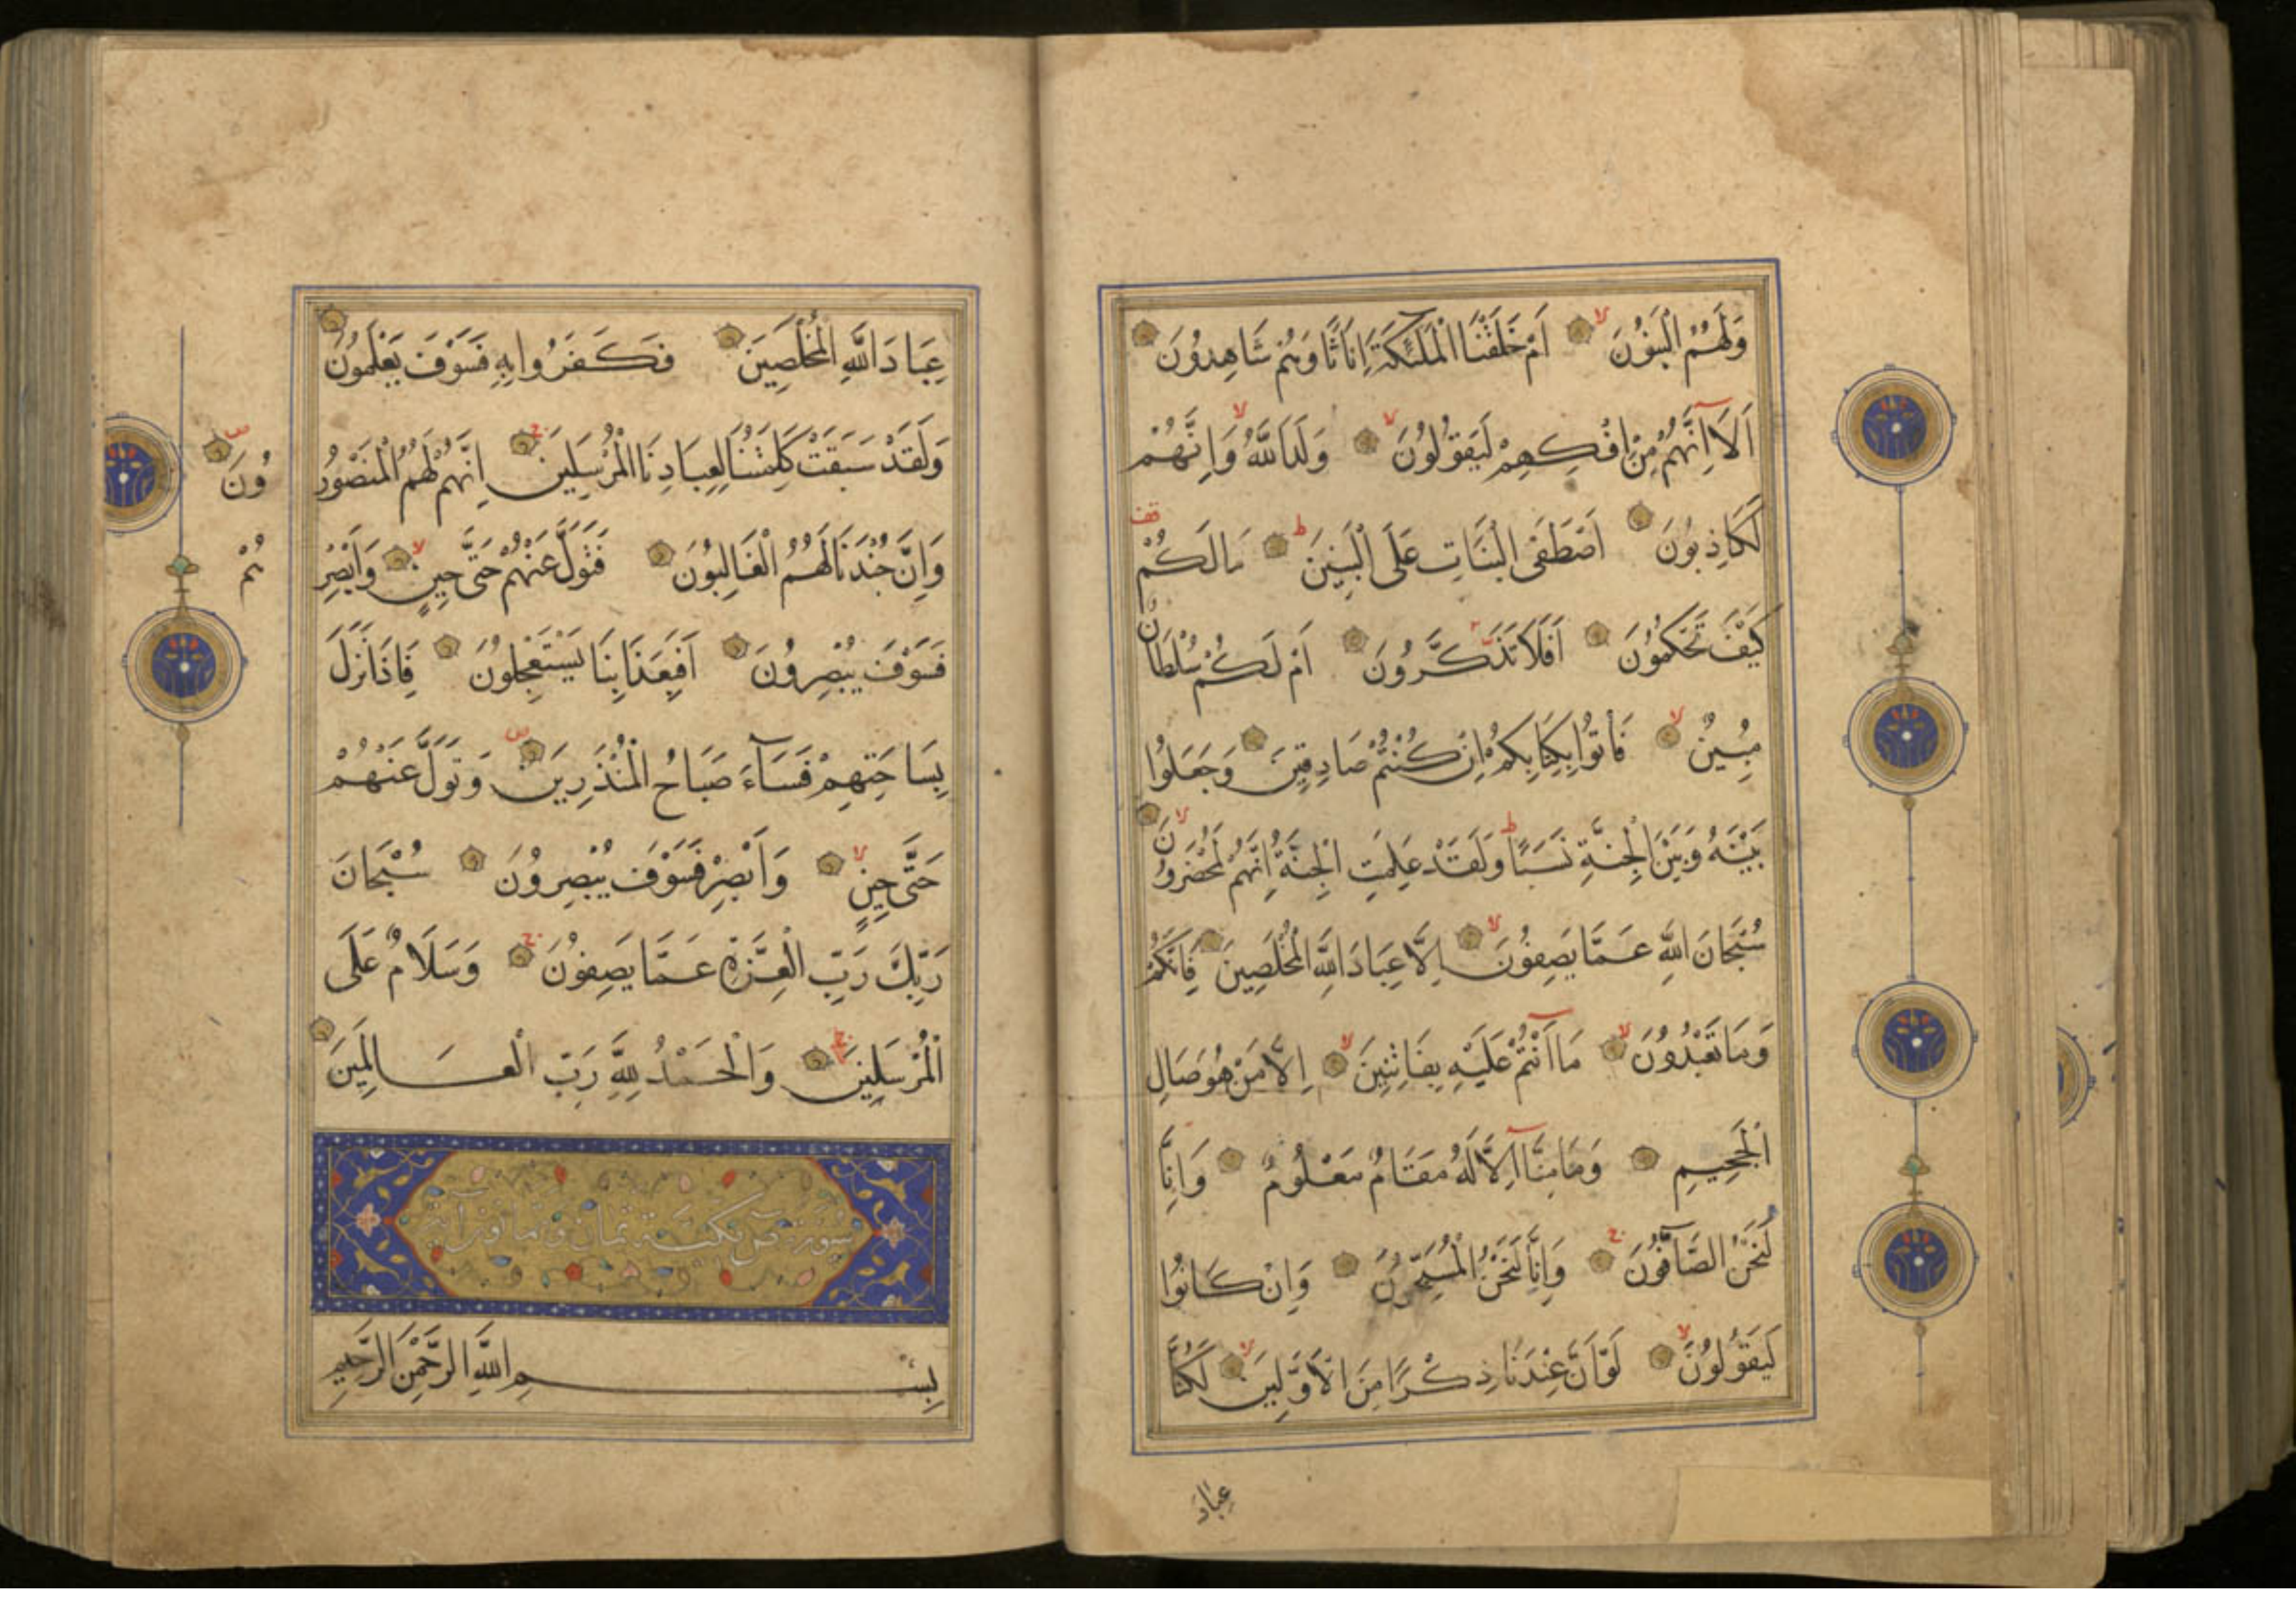 وَلَهُمُ الْبَنُونَ لا اَمْ خَلَقْنَا الْمَلٰئِكَةَ اِنَاثًا وَهُمْ شَاهِدُونَ
اَلَا اِنَّهُمْ مِنْ اِفْكِهِمْ لَيَقُولُونَ لا وَلَدَ اللّٰهُ لا وَاِنَّهُمْ
لَكَاذِبُونَ اَصْطَفَى الْبَنَاتِ عَلَى الْبَنِينَ ط مَالَكُمْ قف
كَيْفَ تَحْكُمُونَ اَفَلَا تَذَكَّرُونَ اَمْ لَكُمْ سُلْطَانٌ
مُبِينٌ لا فَأْتُوا بِكِتَابِكُمْ اِنْ كُنْتُمْ صَادِقِينَ وَجَعَلُوا
بَيْنَهُ وَبَيْنَ الْجِنَّةِ نَسَبًا ط وَلَقَدْ عَلِمَتِ الْجِنَّةُ اِنَّهُمْ لَمُحْضَرُونَ لا
سُبْحَانَ اللّٰهِ عَمَّا يَصِفُونَ لا اِلَّا عِبَادَ اللّٰهِ الْمُخْلَصِينَ فَاِنَّكُمْ
وَمَا تَعْبُدُونَ لا مَا اَنْتُمْ عَلَيْهِ بِفَاتِنِينَ لا اِلَّا مَنْ هُوَ صَالِ
الْجَحِيمِ وَمَا مِنَّا اِلَّا لَهُ مَقَامٌ مَعْلُومٌ وَاِنَّا
لَنَحْنُ الصَّافُّونَ ج وَاِنَّا لَنَحْنُ الْمُسَبِّحُونَ وَاِنْ كَانُوا
لَيَقُولُونَ لا لَوْ اَنَّ عِنْدَنَا ذِكْرًا مِنَ الْاَوَّلِينَ لا لَكُنَّا
عِبَادَ
عِبَادَ اللّٰهِ الْمُخْلَصِينَ فَكَفَرُوا بِهِ فَسَوْفَ يَعْلَمُونَ
وَلَقَدْ سَبَقَتْ كَلِمَتُنَا لِعِبَادِنَا الْمُرْسَلِينَ ج اِنَّهُمْ لَهُمُ الْمَنْصُورُ
ونَ ص
وَاِنَّ جُنْدَنَا لَهُمُ الْغَالِبُونَ فَتَوَلَّ عَنْهُمْ حَتَّى حِينٍ لا وَاَبْصِرْ
هُمْ
فَسَوْفَ يُبْصِرُونَ اَفَبِعَذَابِنَا يَسْتَعْجِلُونَ فَاِذَا نَزَلَ
بِسَاحَتِهِمْ فَسَاءَ صَبَاحُ الْمُنْذَرِينَ وَتَوَلَّ عَنْهُمْ
حَتَّى حِينٍ لا وَاَبْصِرْ فَسَوْفَ يُبْصِرُونَ سُبْحَانَ
رَبِّكَ رَبِّ الْعِزَّةِ عَمَّا يَصِفُونَ ج وَسَلَامٌ عَلَى
الْمُرْسَلِينَ ج وَالْحَمْدُ لِلّٰهِ رَبِّ الْعَالَمِينَ
سورة ص مكية ثمان وثمانون آية
بِسْمِ اللّٰهِ الرَّحْمٰنِ الرَّحِيمِ